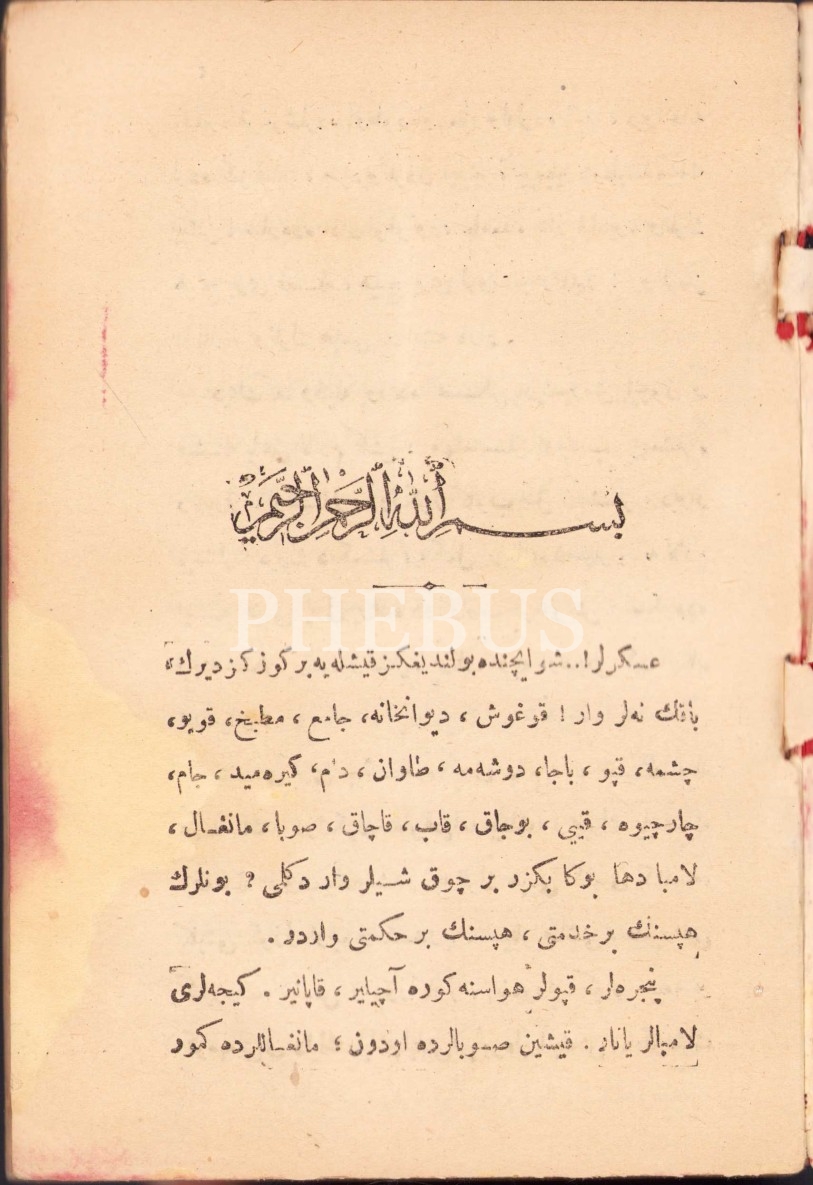 بسم الله الرحمن الرحيم
PHEBUS
عسكرلر!.. شو ایچنده بولندیغكز قیشله یه بر كوز كزدیرك،
باقك نه لر وار! قوغوش، دیوانخانه، جامع، مطبخ، قویو،
چشمه، قپو، باجا، دوشه مه، طاوان، دام، كیره مید، جام،
چارچیوه، قپی، بوجاق، قاب، قاچاق، صوبا، مانغال،
لامبا دها بوكا بكزر بر چوق شیلر وار دكلمی؟ بونلرك
هپسنك بر خدمتی، هپسنك بر حكمتی واردر.
پنجره لر، قپولر هواسنه كوره آچیلیر، قاپانیر. كیجه لری
لامبالر یانار. قیشین صوبالرده اودون؛ مانغاللرده كمور